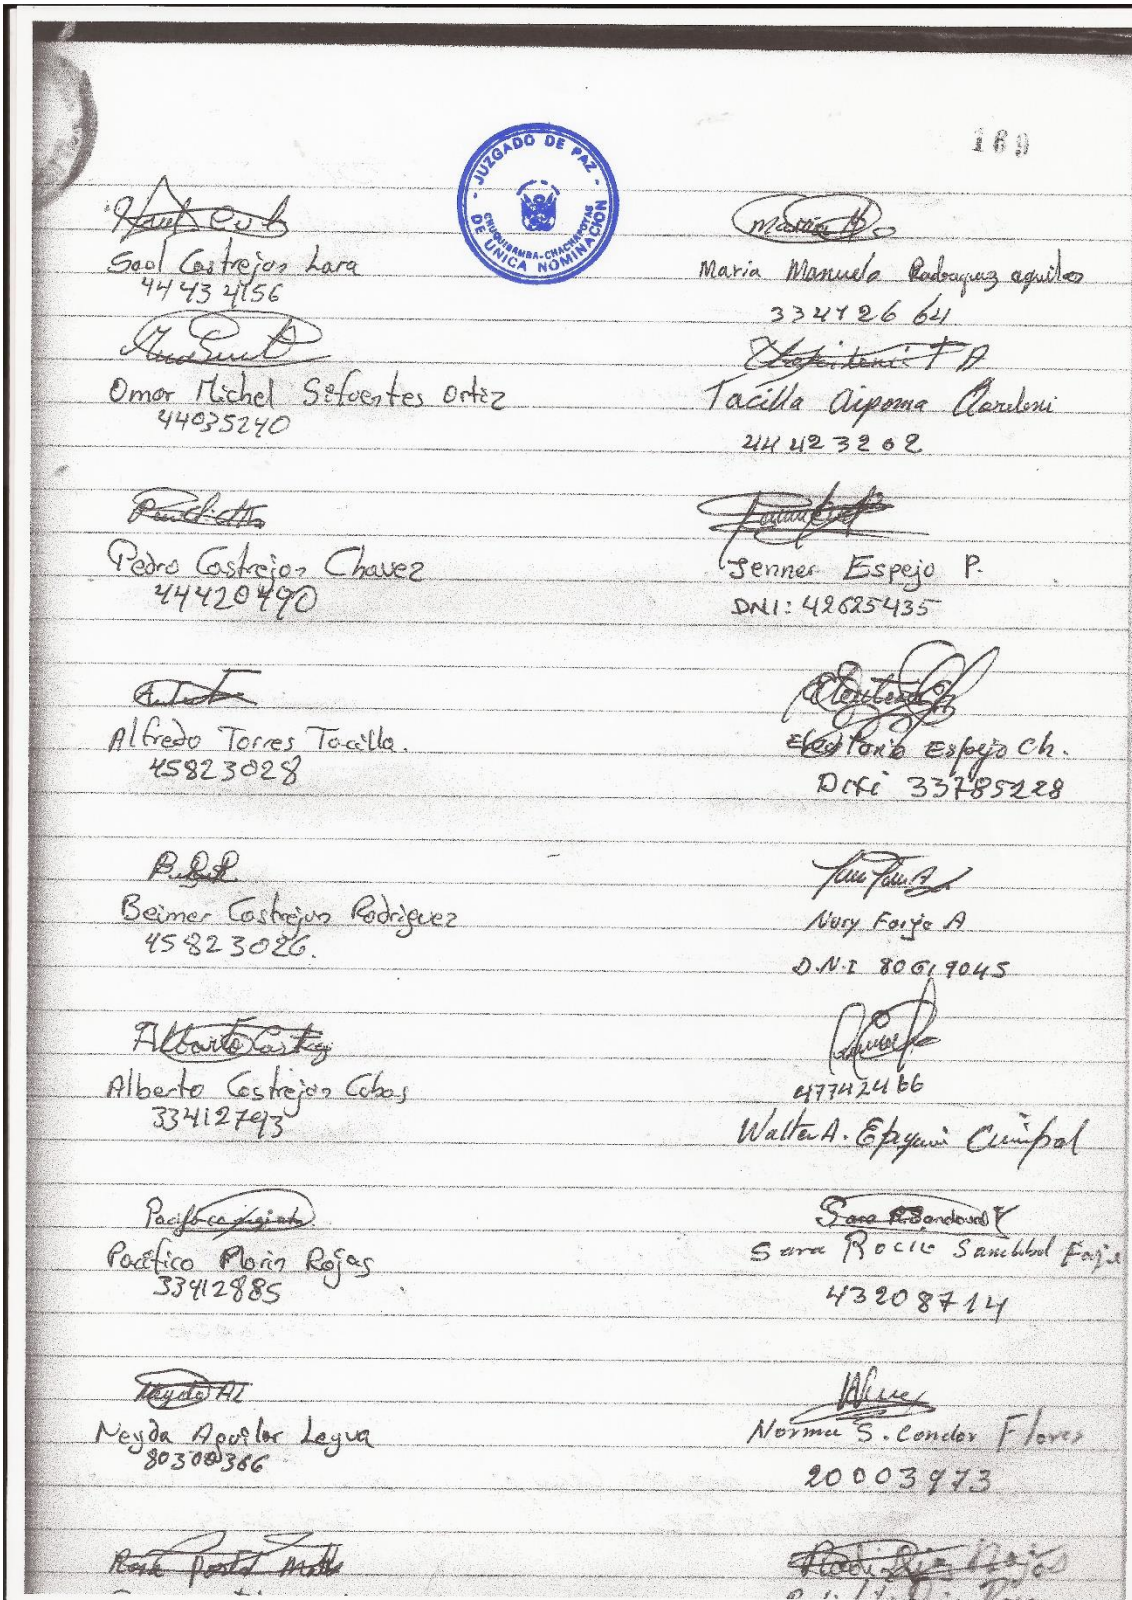 169
JUZGADO DE PAZ
CHUQUIBAMBA-CHACHAPOYAS
DE UNICA NOMINACION
Saol Castrejon Lara
44434156
Omar Michel Sifuentes Ortiz
44035240
Pedro Castrejon Chavez
44420490
Alfredo Torres Tacilla.
45823028
Beimer Castrejon Rodriguez
45823026.
Alberto Castrejon Cobas
33412793
Pacifico Florin Rojas
33412885
Neyda AL
Neyda Aguilar Leyva
80300366
Rosa Portal
Maria Manuela Rodriguez aguilar
33412664
Tacilla Aipoma
44423202
Jenner Espejo P.
DNI: 42625435
Espejo Ch.
DNI 33785228
Nury Farje A
D.N.I 80619045
47742466
Walter A. Epiquin
Sara R Sandoval F
Sara Rocio Sandobal Farje
43208714
Norma S. Condor Flores
20003973
Rojas